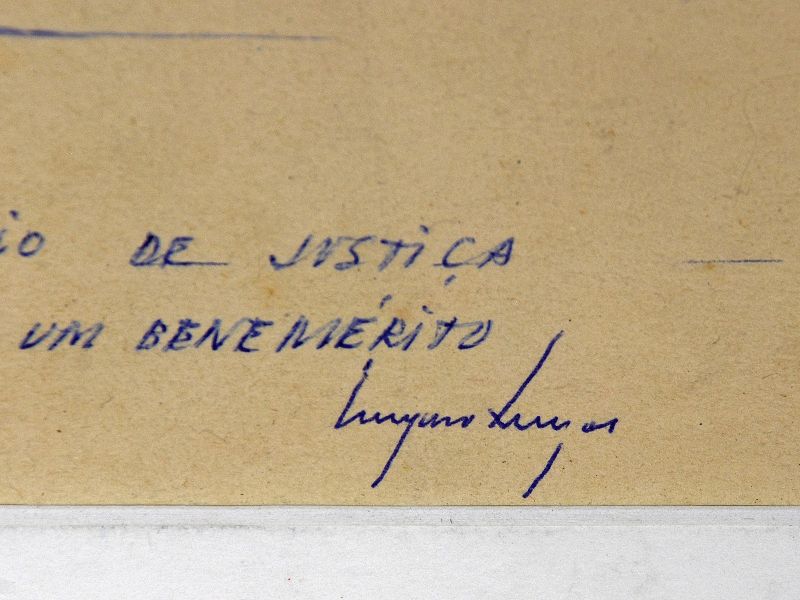 io DE JUSTIÇA
UM BENEMÉRITO